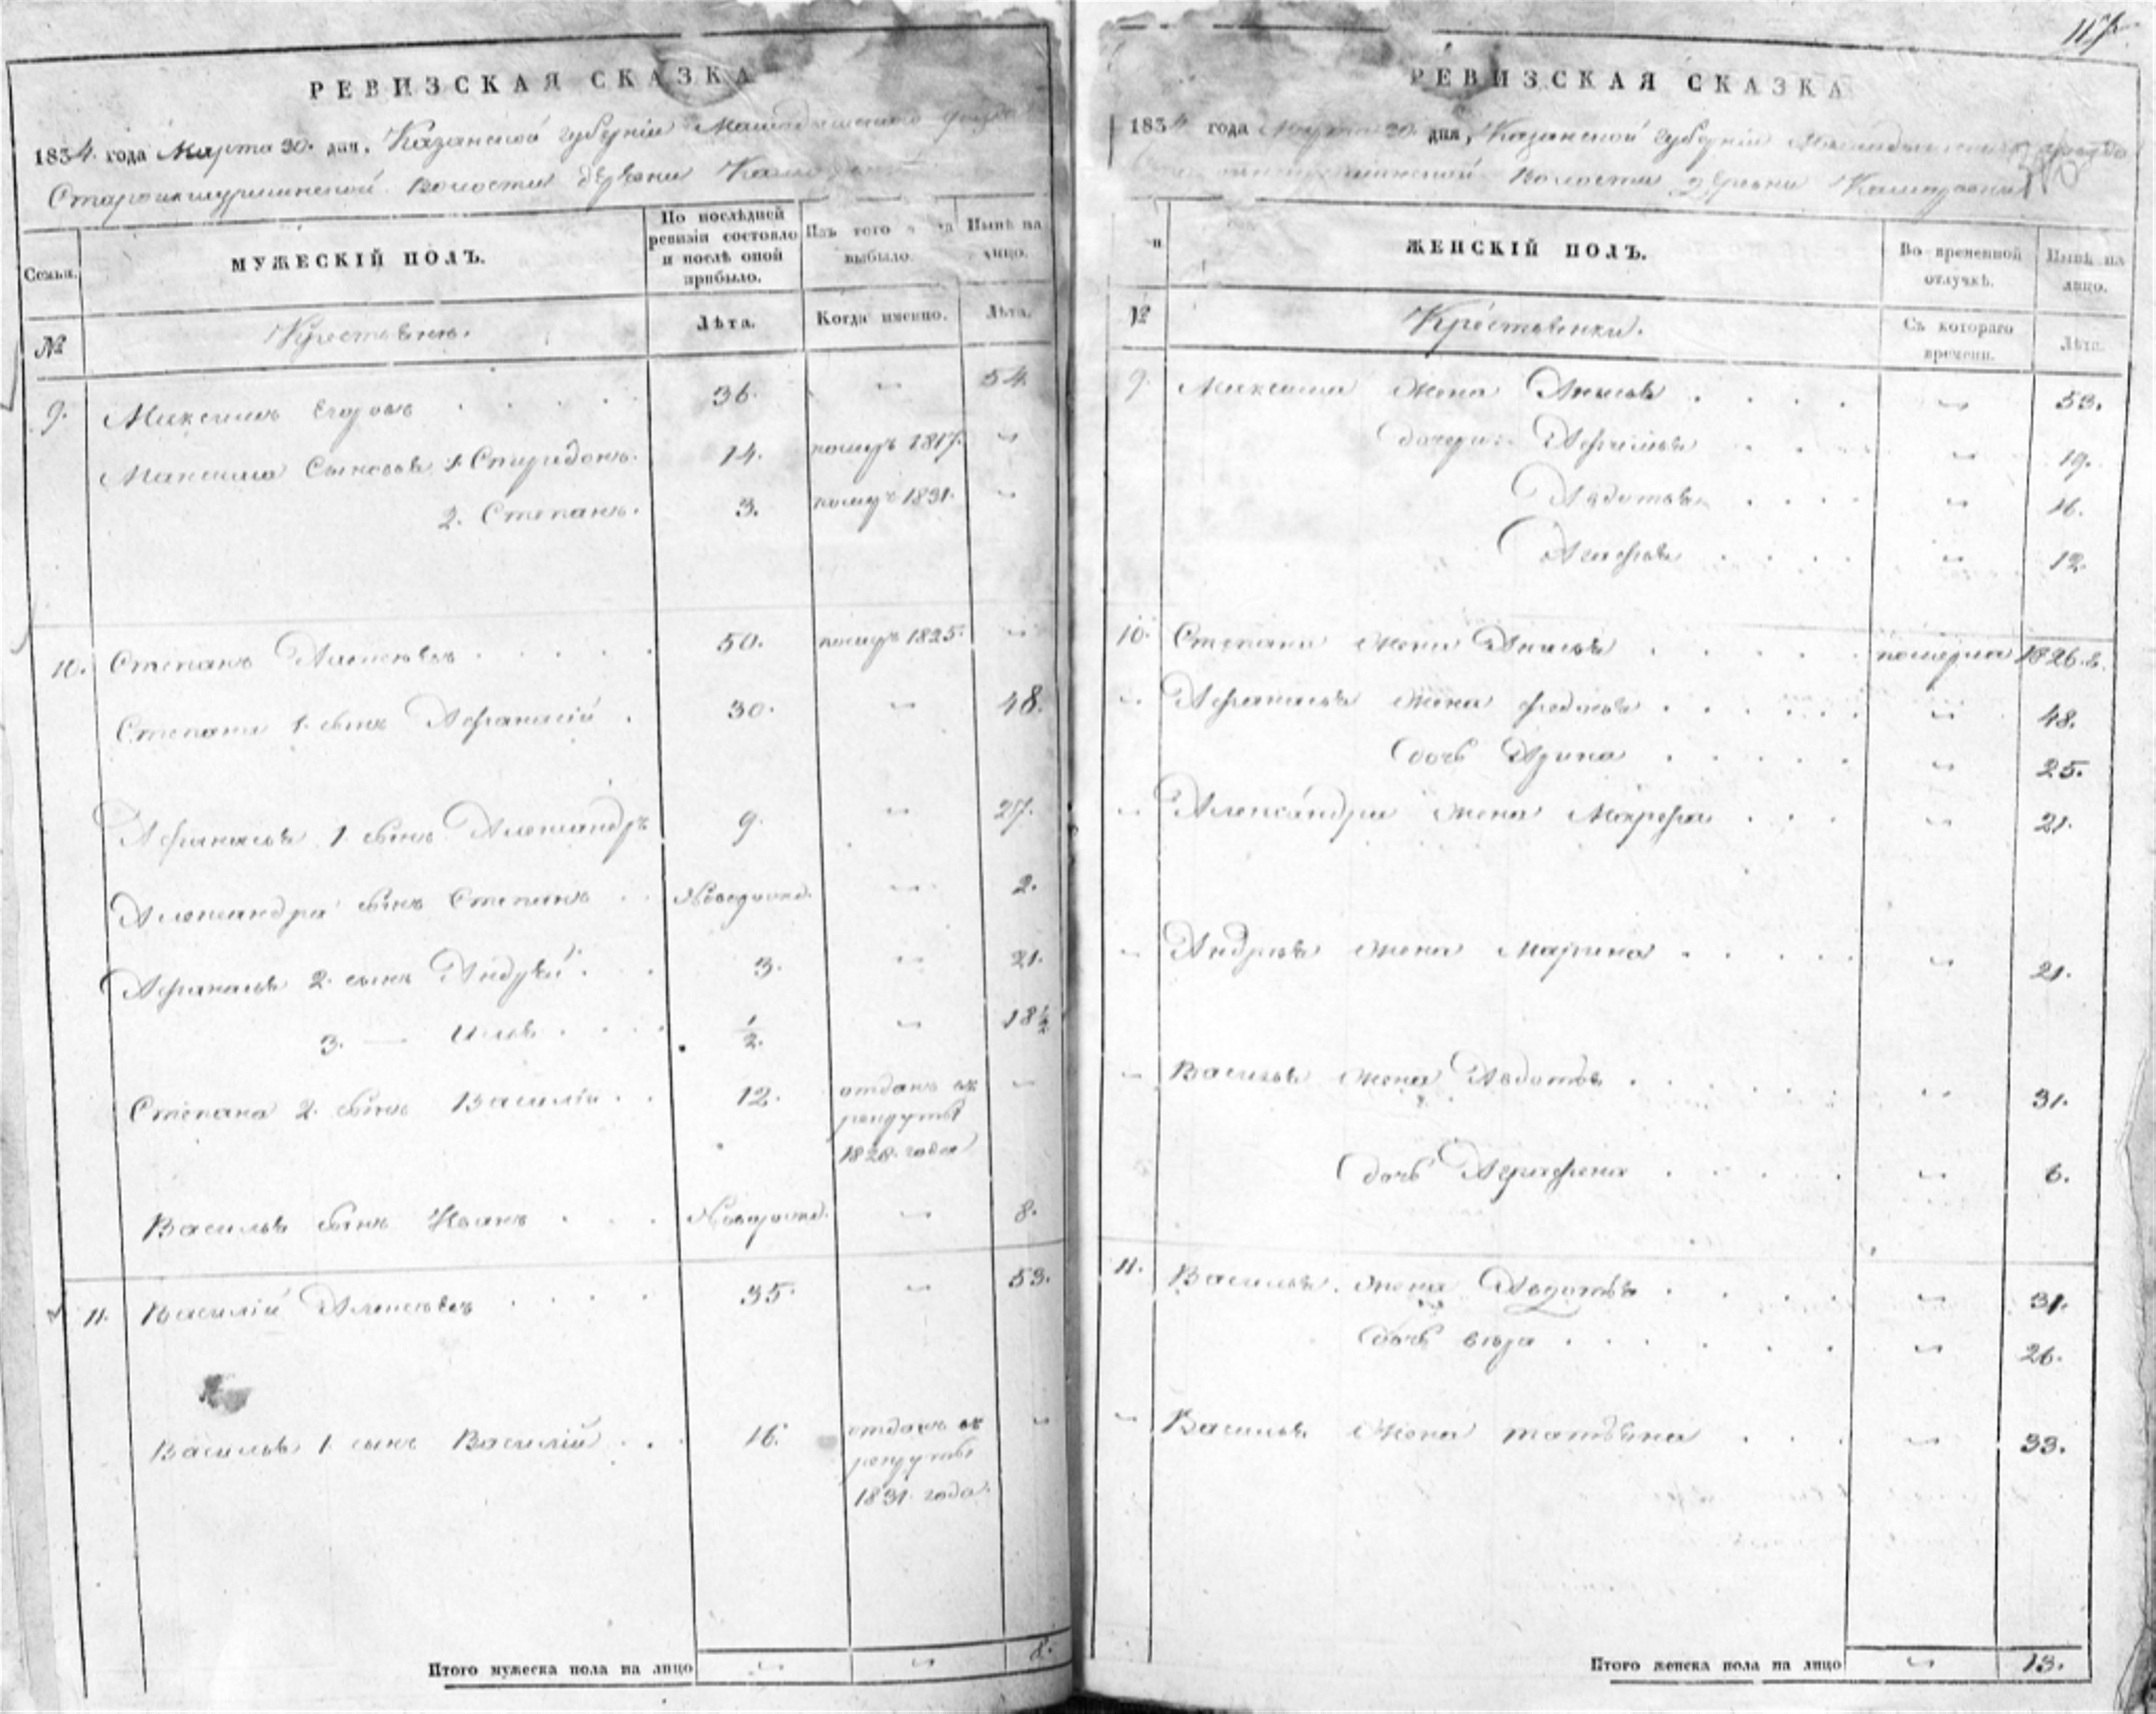 РЕВИЗСКАЯ СКАЗКА
1834. года Марта 30. дня, Казанской губерніи Мамадышскаго уезда
волости деревни
Семьи.
МУЖЕСКІЙ ПОЛЪ.
По послѣдней ревизіи состояло и послѣ оной прибыло.
Изъ того выбыло.
Нынѣ на лицо.
№
Крестьяне.
Лѣта.
Когда именно.
Лѣта.
9. Максимъ Егоровъ 36. 54.
Максима Сыновья 1. Спиридонъ. 14. померъ 1817.
2. Степанъ. 3. померъ 1831.
10. Степанъ Алексѣевъ 50. померъ 1825.
Степана 1. сынъ Афанасій 30. 48.
Афанасья 1. сынъ Александръ 9. 27.
Александра сынъ Степанъ Новорожд. 2.
Афанасья 2. сынъ Андрей 3. 21.
3. — Илья 1/2. 18 1/2
Степана 2. сынъ Василій 12. отданъ въ
рекруты
1828. года
Василья сынъ Иванъ Новорожд. 8.
11. Василій Алексѣевъ 35. 53.
Василья 1. сынъ Василій 16. отданъ въ
рекруты
1831. года.
Итого мужеска пола на лицо 8.
117
РЕВИЗСКАЯ СКАЗКА
1834 года Марта 30. дня, Казанской губерніи Мамадышскаго уезда
волости деревни
ЖЕНСКІЙ ПОЛЪ.
Во временной отлучкѣ.
Нынѣ на лицо.
№
Крестьянки.
Съ котораго времени.
Лѣта.
9. Максима жена Анисья 53.
дочери: 19.
Авдотья 16.
12.
10. Степана жена померла 1826. г.
Афанасья жена Федосья 48.
дочь Арина 25.
Александра жена Марфа 21.
Андрея жена Марина 21.
Василья жена Авдотья 31.
дочь Аграфена 6.
11. Василья жена Авдотья 31.
дочь вѣра 26.
Василья жена матвѣна 33.
Итого женска пола на лицо 13.